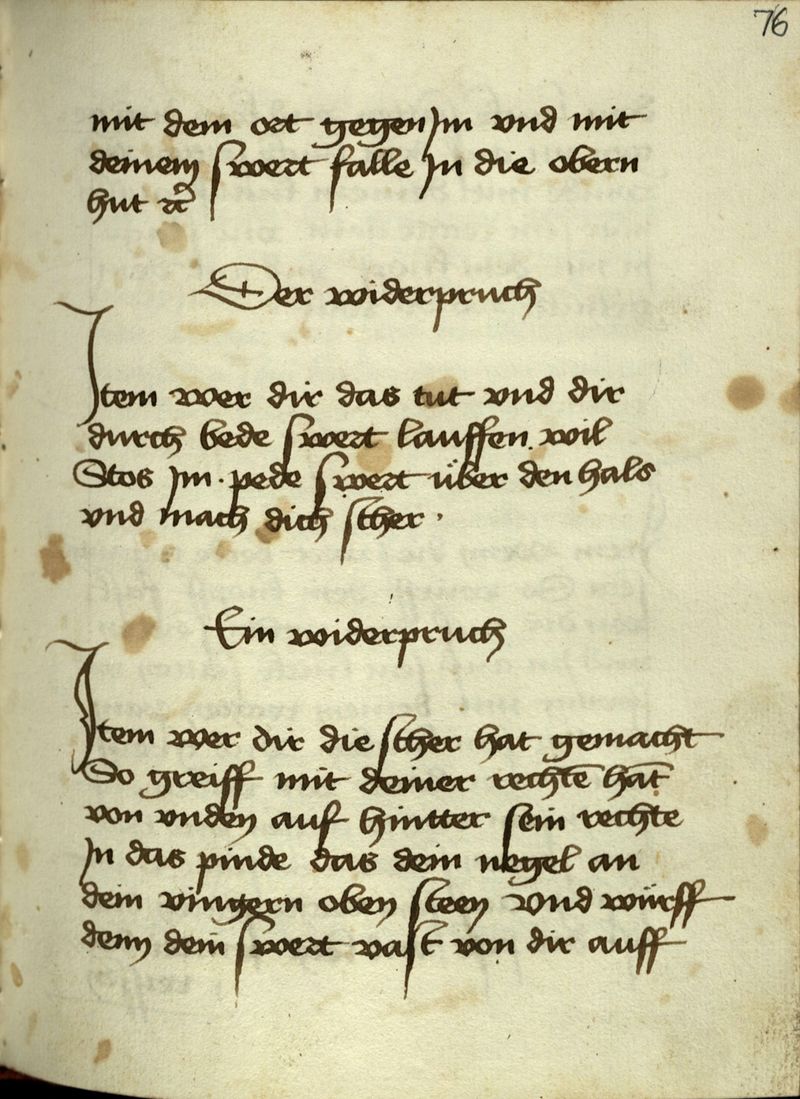 76
mit dem ort gegen Jm vnd mit
deinem swert falle Jn die obern
hut rc̃
Der widerpruch
Jtem wer dir das tut vnd dir
durch bede swert lauffen wil
Stos Jm · pede swert über den hals
vnd mach dich scher ·
Ein widerpruch
Jtem wer dir die scher hat gemacht
So greiff mit deiner rechtē hāt
von vnden auf hintter sein rechte
Jn das pinde das dein negel an
dein vingern oben steen Vnd würff
denn dein swert vast von dir auff